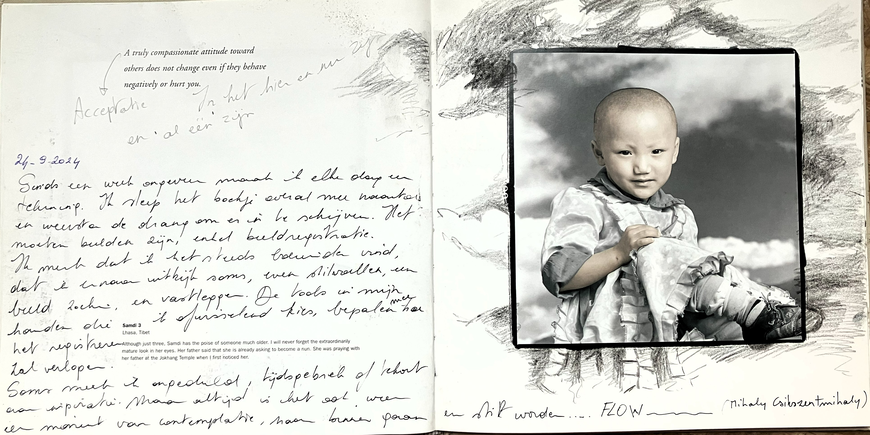 A truly compassionate attitude toward
others does not change even if they behave
negatively or hurt you.
Acceptatie In het hier en nu zijn
en al één zijn
24-9-2024
Sinds een week ongeveer maak ik elke dag een
tekening. Ik sleep het boekje overal mee naartoe
en weersta de drang om er in te schrijven. Het
moeten beelden zijn, enkel beeldregistratie.
Ik merk dat ik het steeds boeiender vind,
dat ik ernaar uitkijk soms, even stilvallen, een
beeld zoeken, en vastleggen. De tools in mijn
handen die ik afwisselend kies, bepalen mee hoe
het registreren
zal verlopen.
Samdi 3
Lhasa, Tibet
Although just three, Samdi has the poise of someone much older. I will never forget the extraordinarily
mature look in her eyes. Her father said that she is already asking to become a nun. She was praying with
her father at the Jokhang Temple when I first noticed her.
Soms merk ik ongeduld, tijdsgebrek of tekort
aan inspiratie. Maar altijd is het ook weer
een moment van contemplatie, naar binnen gaan
en stil worden .... FLOW (Mihaly Csikszentmihaly)